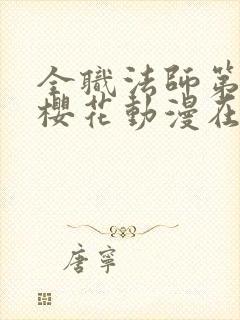 全職法師第
櫻花動漫在
唐寧